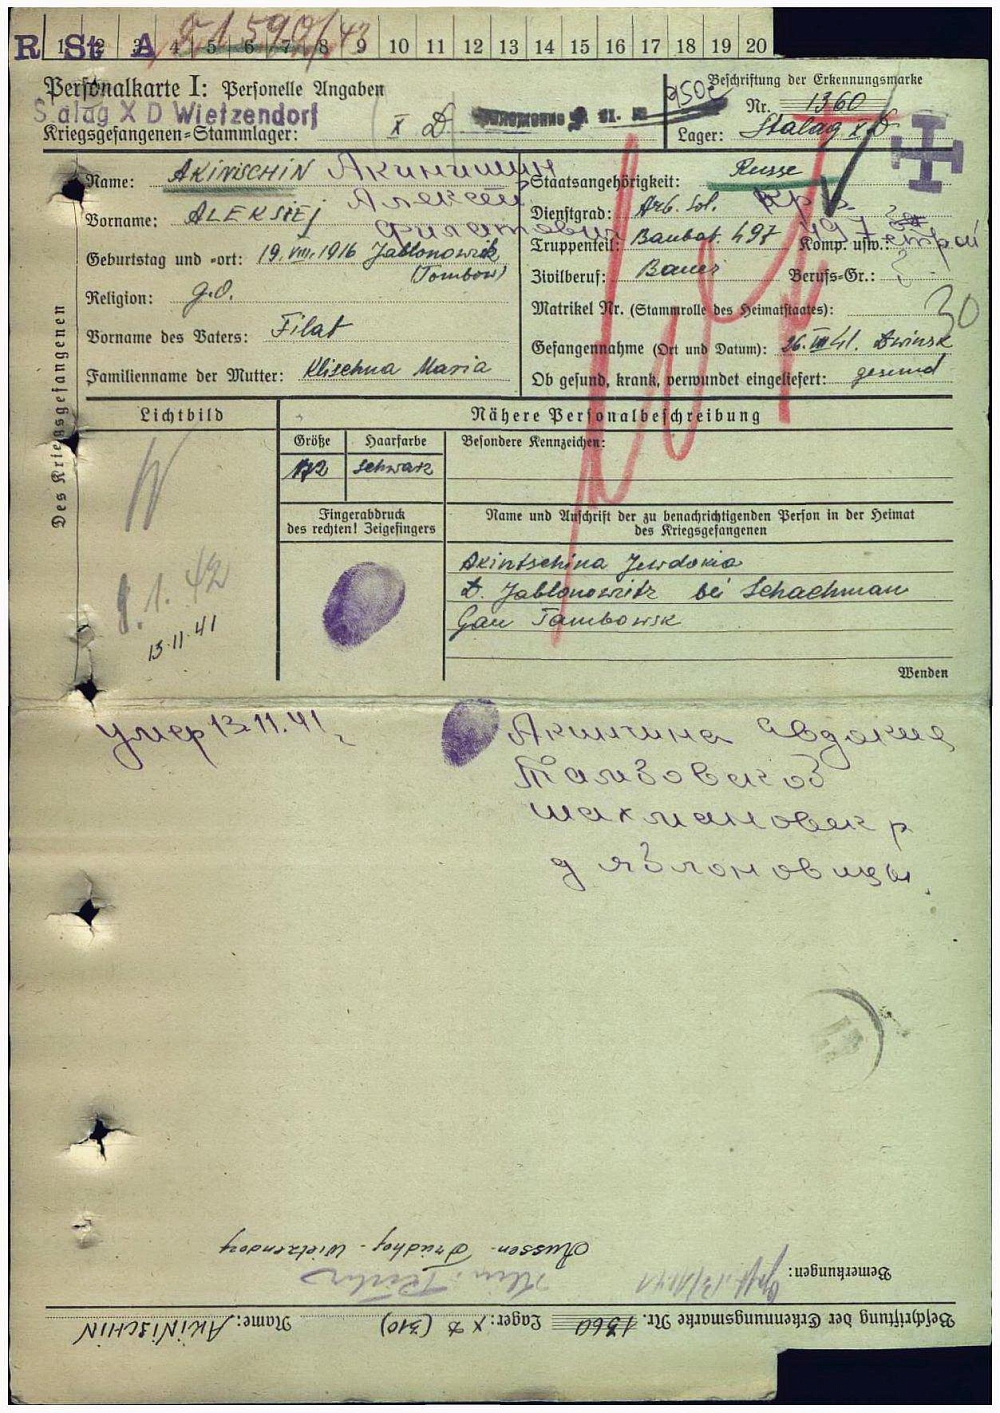 R St A
1 2 3 4 5 6 7 8 9 10 11 12 13 14 15 16 17 18 19 20
Personalkarte I: Personelle Angaben
Beschriftung der Erkennungsmarke
Stalag X D Wietzendorf
Nr. 1360
Kriegsgefangenen-Stammlager: X D
Lager: Stalag X D
Des Kriegsgefangenen
Name: AKINISCHIN Акинишин
Staatsangehörigkeit: Russe
Vorname: ALEKSIEJ Алексей
Dienstgrad: Arb. Sol. кр
Филатович
Truppenteil: Baubat. 497 Komp. usw.: 497 строй
Geburtstag und -ort: 19.VIII.1916 Jablonowitz
(Tombow)
Zivilberuf: Bauer Berufs-Gr.:
Religion: g.o.
Matrikel Nr. (Stammrolle des Heimatstaates):
30
Vorname des Vaters: Filat
Gefangennahme (Ort und Datum): 26.VII 41. Dwinsk
Familienname der Mutter: Klischna Maria
Ob gesund, krank, verwundet eingeliefert: gesund
Lichtbild
Nähere Personalbeschreibung
Größe Haarfarbe Besondere Kennzeichen:
172 schwarz
Fingerabdruck
des rechten! Zeigefingers
Name und Anschrift der zu benachrichtigenden Person in der Heimat
des Kriegsgefangenen
Akintschina Jewdokia
D. Jablonowitz bei Schachman
Gau Tambowsk
9.1.42
13.11.41
Wenden
умер 13.11.41
Акинчина Авдокия
Тамбовской
шахмановск р
д яблоновцы.
Russen-Friedhof-Wietzendorf
Bemerkungen:
Beschriftung der Erkennungsmarke Nr. 1360 Lager: X D (310) Name: AKINISCHIN